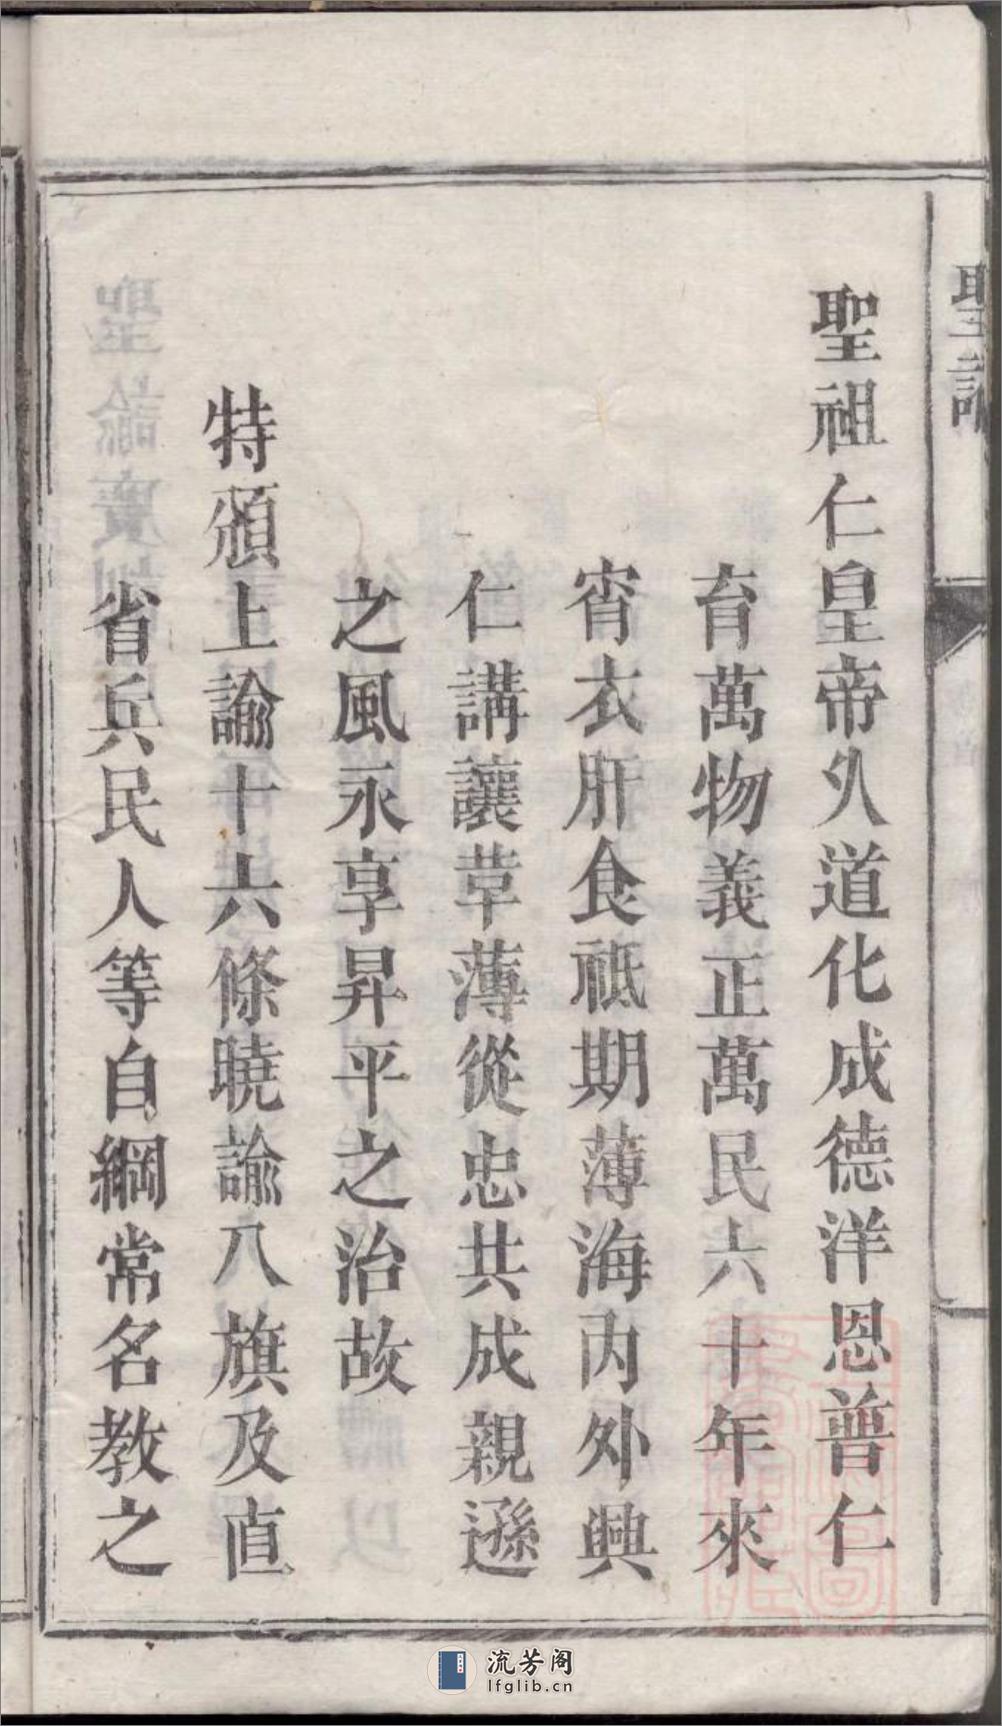 聖祖仁皇帝久道化成德洋恩普仁
育萬物義正萬民六十年來
宵衣肝食祗期薄海内外興
仁講讓革薄從忠共成親遜
之風永享昇平之治故
特頒上諭十六條曉諭八旗及直
省兵民人等自綱常名教之
流芳阁
lfglib.cn